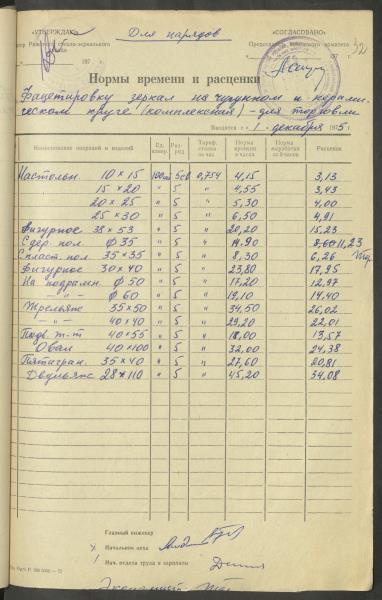 «УТВЕРЖДАЮ»
Для нарядов
«СОГЛАСОВАНО»
32
197 г.
197 г.
Нормы времени и расценки
Фацетировку зеркал на чугунном и керами-
ческом круге (комплексная) - для торговли
Вводятся с «1» декабря 1975 г.
Наименование операций и изделий Ед. измер. Раз-ряд Тариф. ставка за час Норма времени в часах Норма выработки за 8 часов Расценки
Настольн. 10 × 15 100шт 5св 0,754 4,15 3,13
15 × 20 " 5 " 4,55 3,43
20 × 25 " 5 " 5,30 4,00
25 × 30 " 5 " 6,50 4,91
Фигурное 38 × 53 " 5 " 20,20 15,23
Сфер. пол. ф 35 " 5 " 14.90 11,23
Спласт. пол. 35 × 35 " 5 " 8,30 6,26
Фигурное 30 × 40 " 5 " 23,80 17,95
На подрамн. ф 50 " 5 " 17,20 12,97
- " - ф 60 " 5 " 19,10 14,40
Трельяж 35 × 50 " 5 " 34,50 26,02
- " - 40 × 40 " 5 " 29,20 22,01
Подв. т-т 40 × 55 " 5 " 18,00 13,57
Овал 40 × 100 " 5 " 32,00 24,38
Пятигран. 35 × 40 " 5 " 27,60 20,81
Двульяж 28 × 110 " 5 " 45,20 34,08
Главный инженер
Начальник цеха
Нач. отдела труда и зарплаты
Экономист